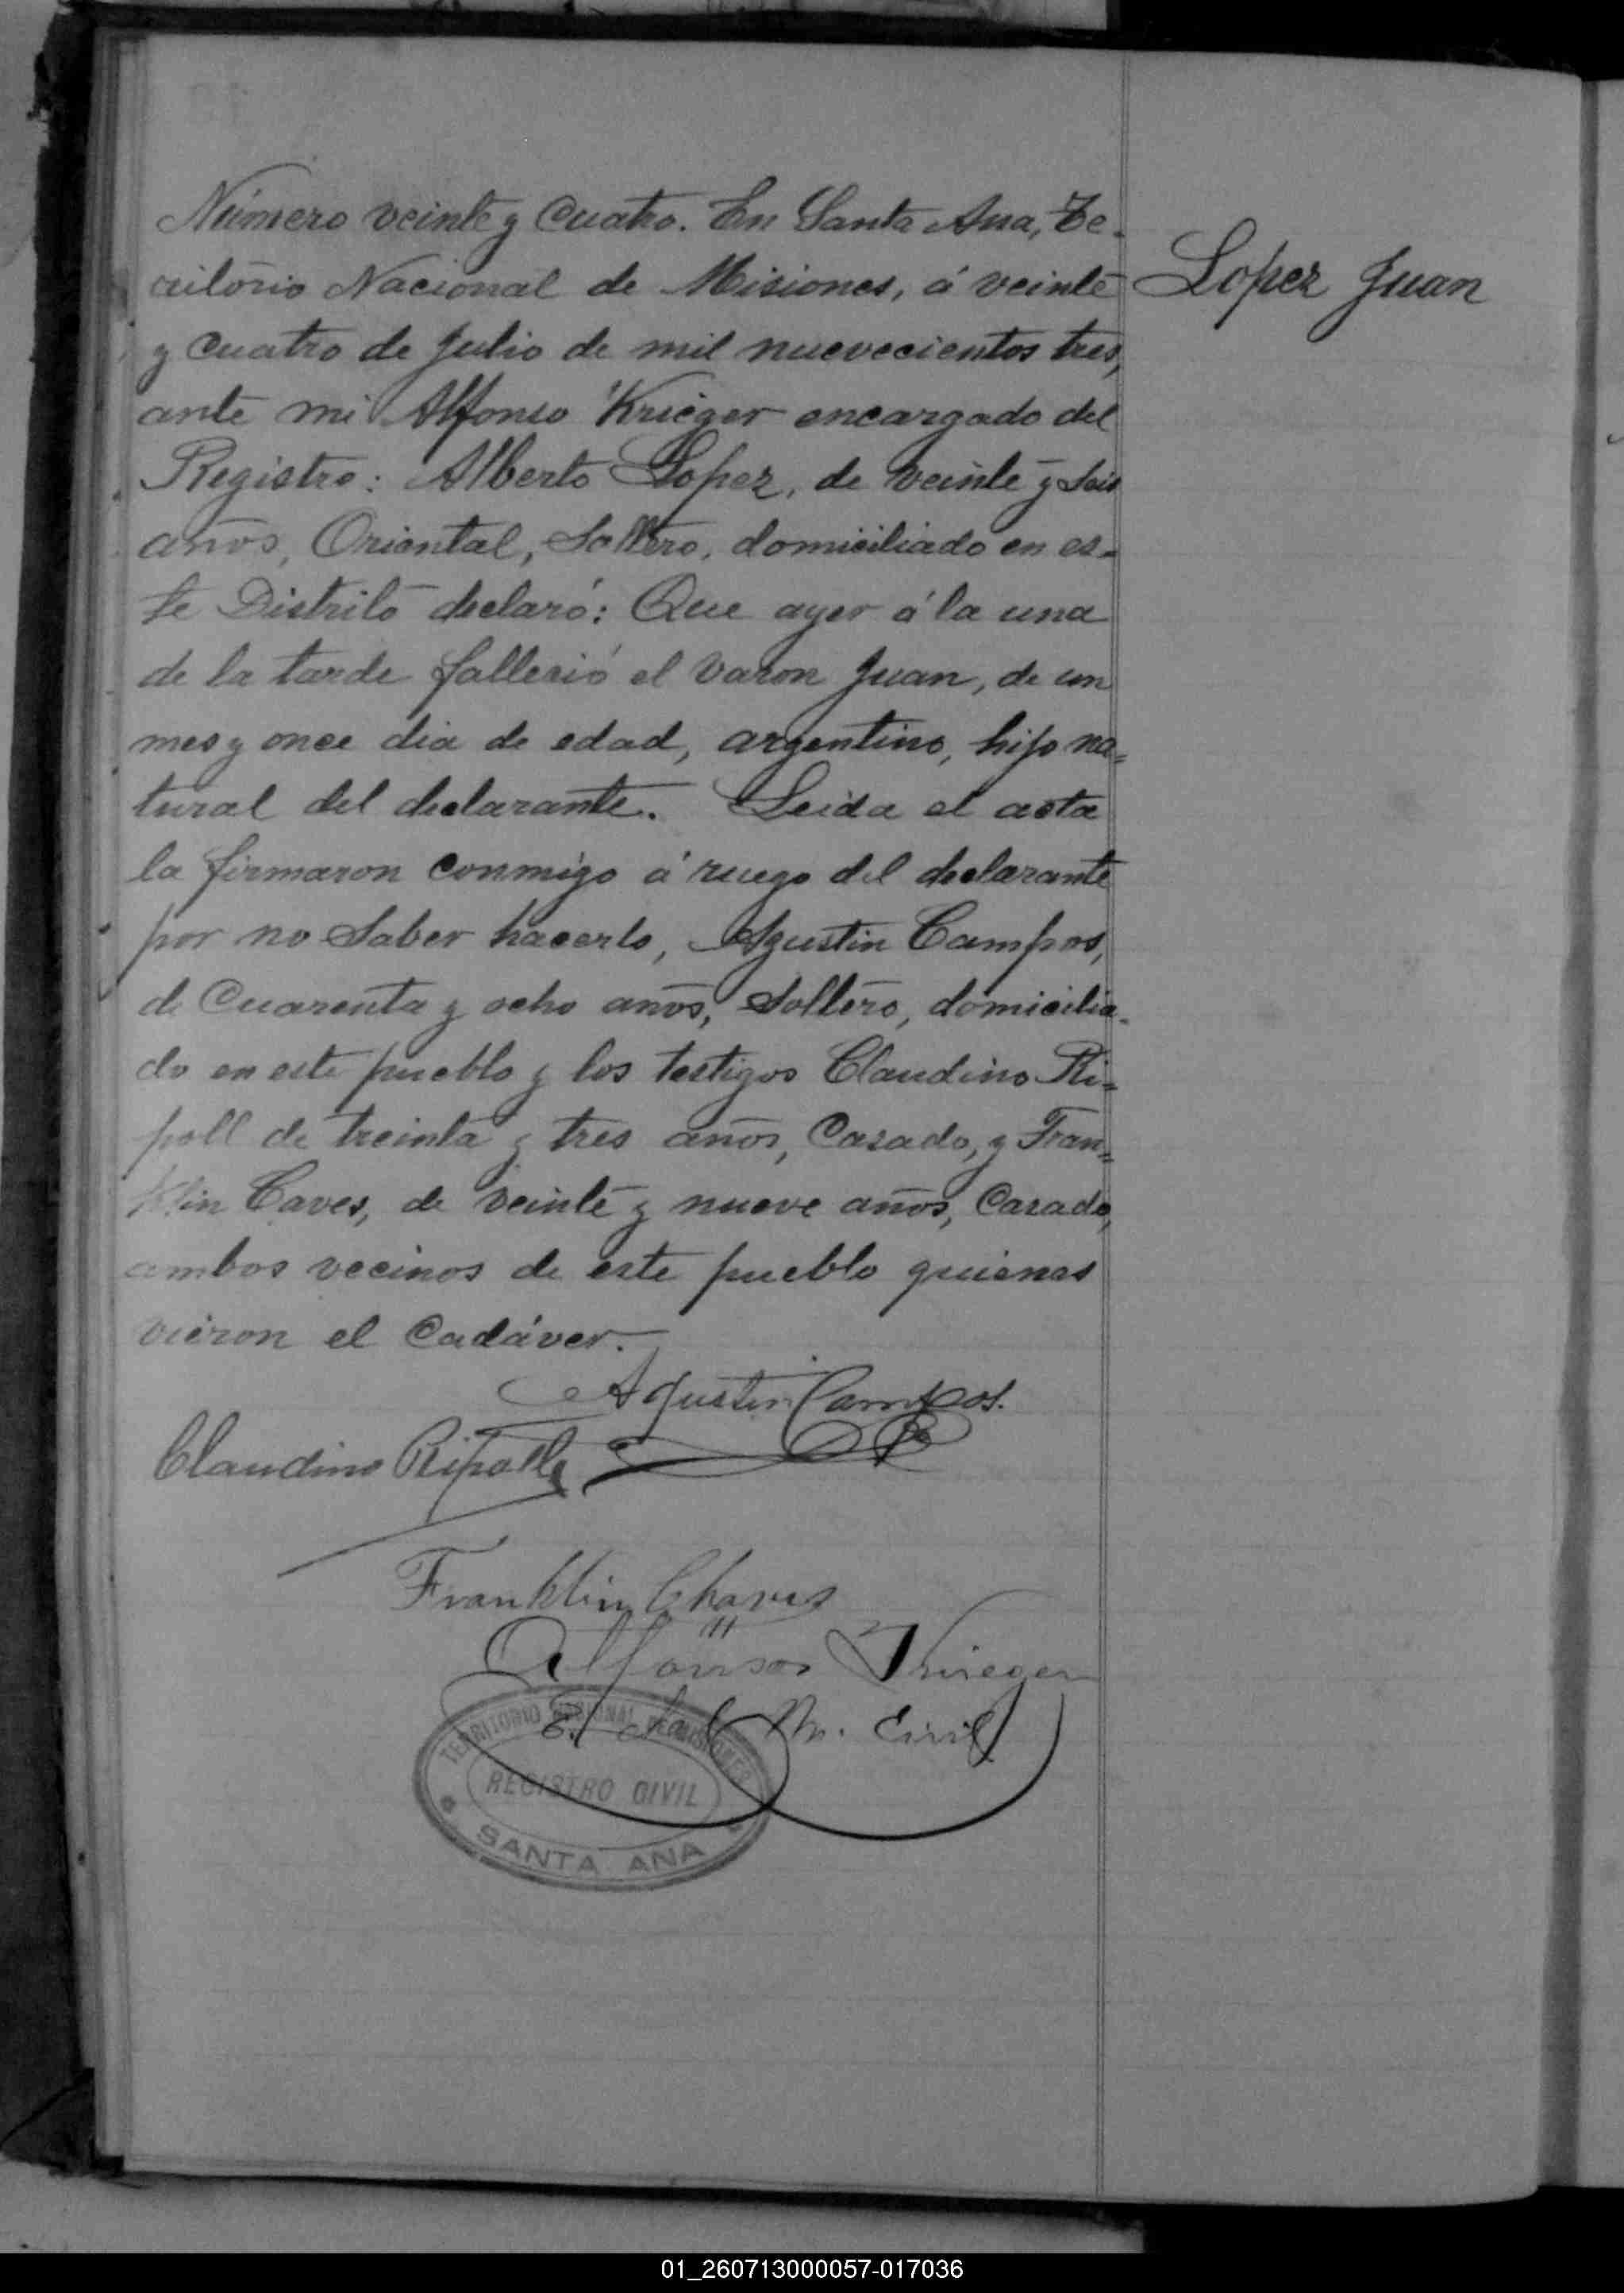 Número veinte y cuatro. En Santa Ana, Te-
rritorio Nacional de Misiones, á veinte
y cuatro de Julio de mil nuevecientos tres,
ante mi Alfonso Krieger encargado del
Registro: Alberto Lopez, de veinte y seis
años, Oriental, Soltero, domiciliado en es-
te Distrito declaró: Que ayer á la una
de la tarde falleció el varon Juan, de un
mes y once dia de edad, argentino, hijo na=
tural del declarante. Leida el acta
la firmaron conmigo á ruego del declarante
por no saber hacerlo, Agustin Campos,
de Cuarenta y ocho años, Soltero, domicilia-
do en este pueblo y los testigos Claudino Ri=
poll de treinta y tres años, Casado, y Fran=
klin Caves, de veinte y nueve años, Casado,
ambos vecinos de este pueblo quienes
vieron el Cadáver.
Lopez Juan
Agustin Campos.
Claudino Ripoll
Franklin Chaves
Alfonso Krieger
Civil
TERRITORIO NACIONAL DE MISIONES
REGISTRO CIVIL
SANTA ANA
01_260713000057-017036